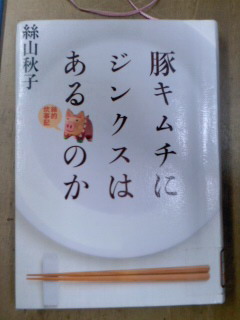 豚キムチに
ジンクスは
あるのか
絲的
炊事記
絲山秋子